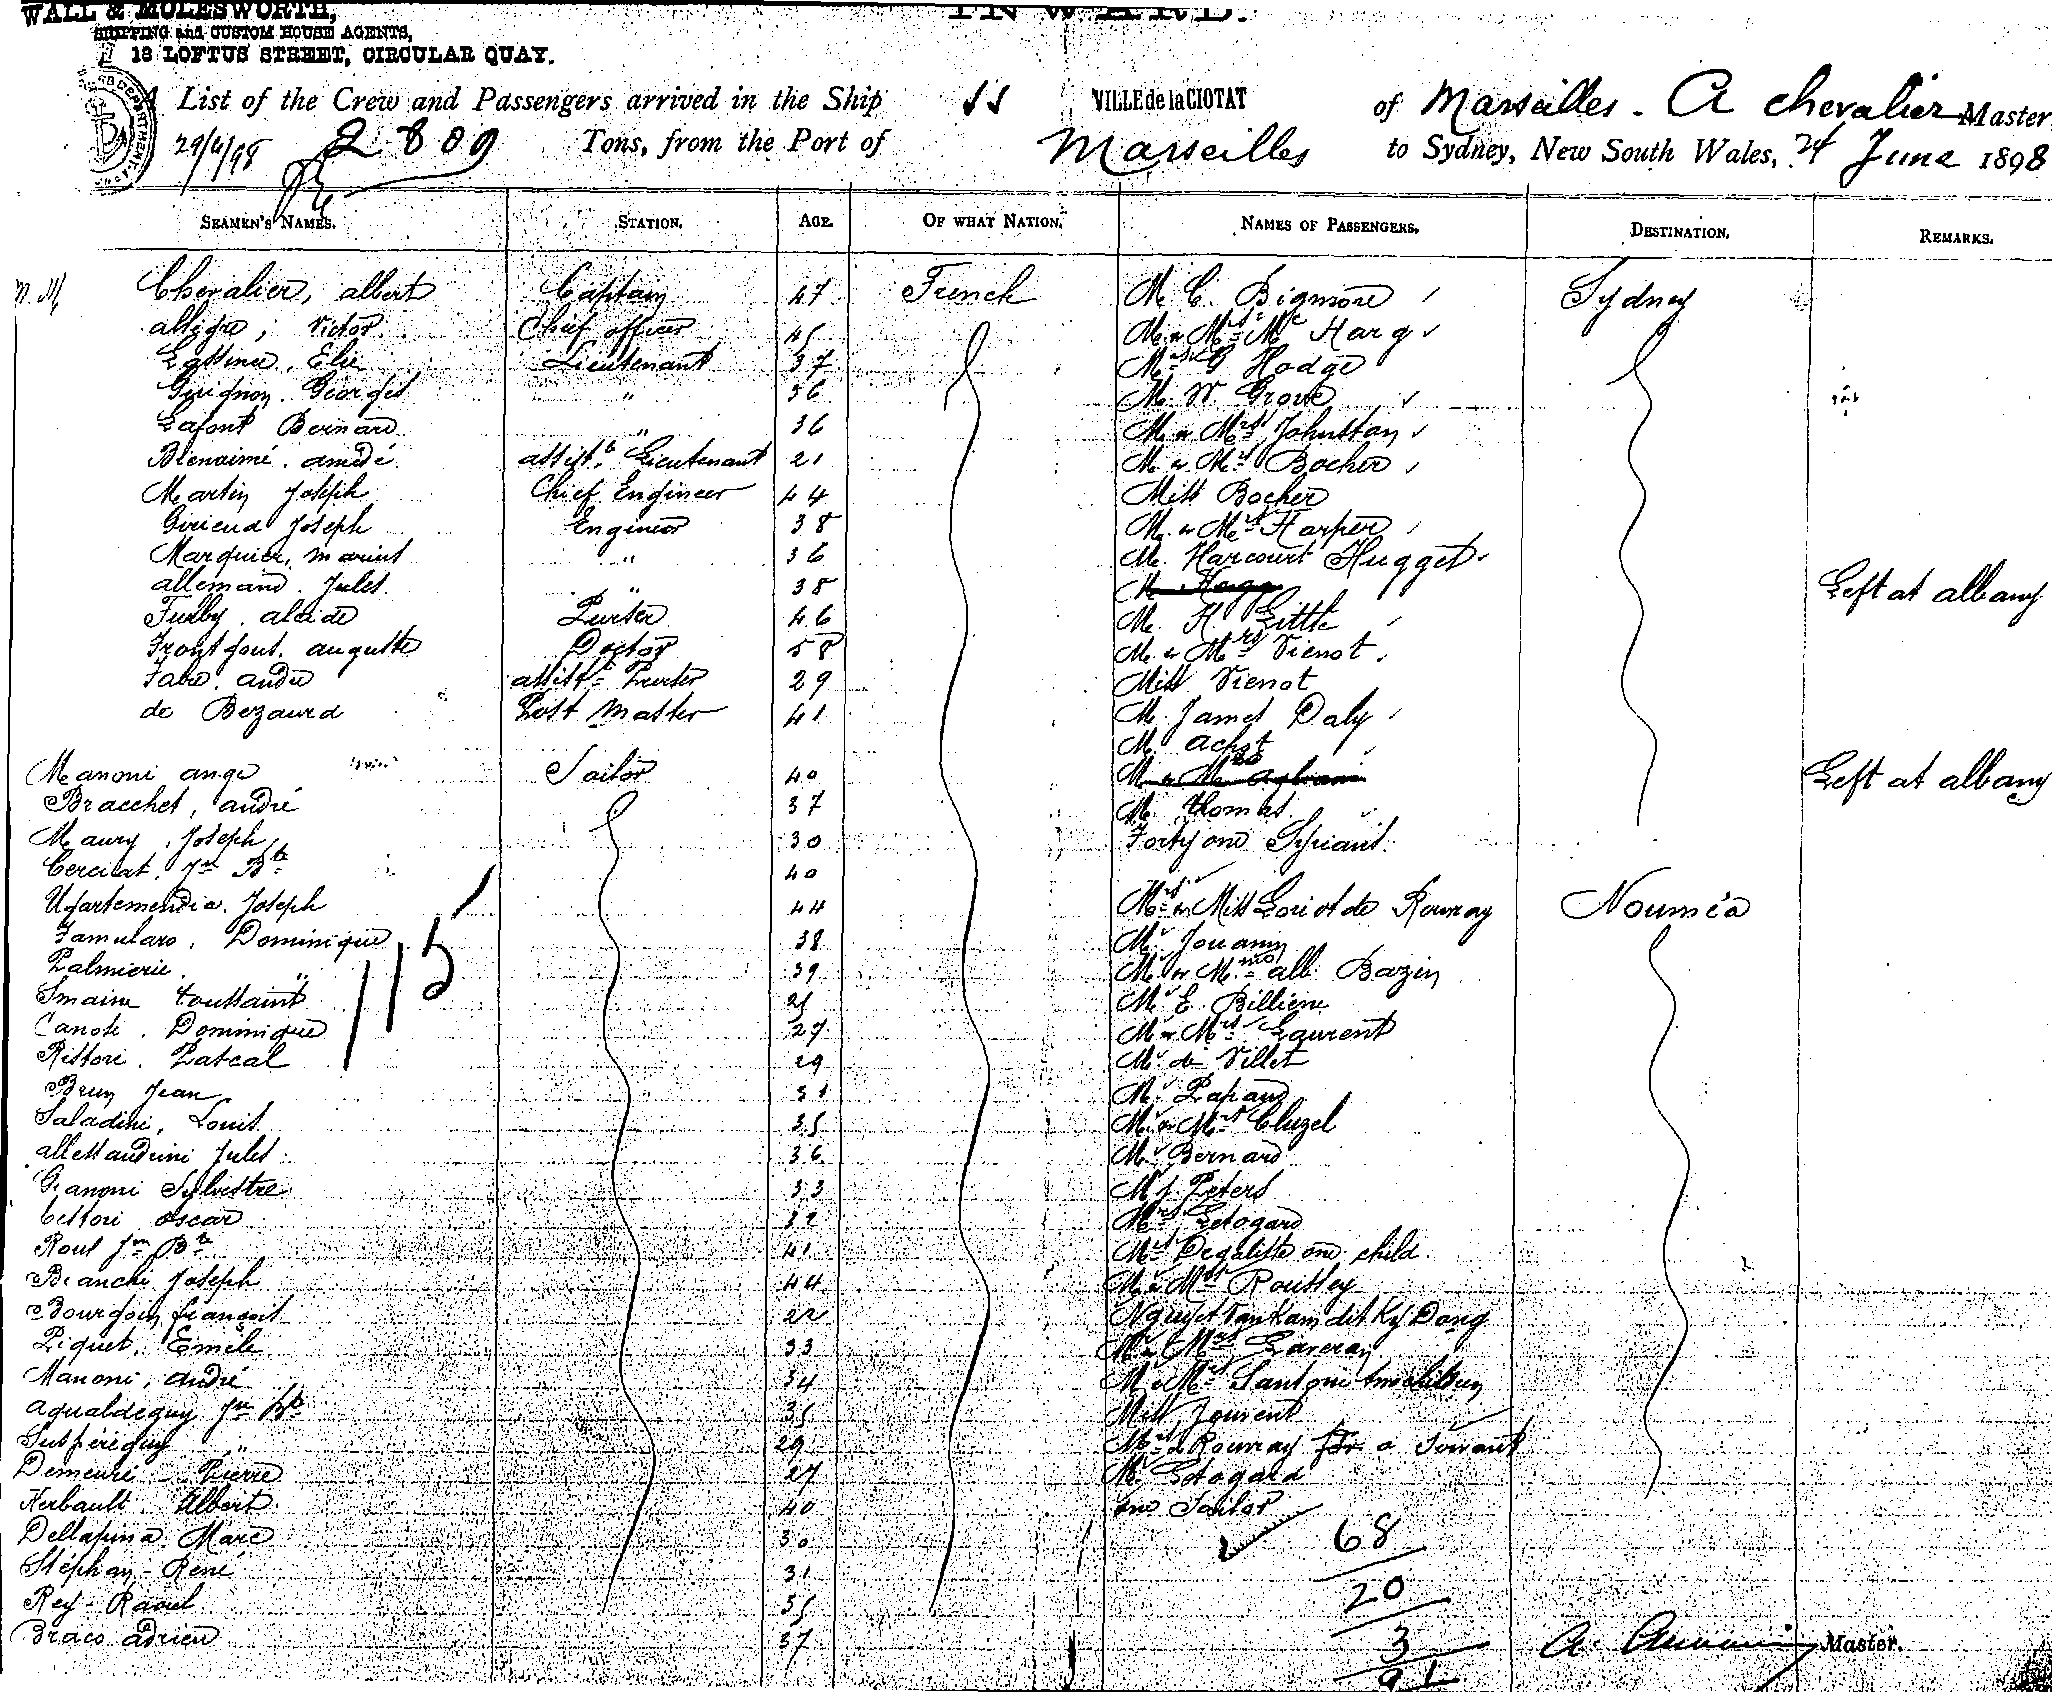 WALL & MOLESWORTH,
SHIPPING and CUSTOM HOUSE AGENTS,
18 LOFTUS STREET, CIRCULAR QUAY.
INWARD.
A List of the Crew and Passengers arrived in the Ship SS VILLE de la CIOTAT of Marseilles - A Chevalier Master
29/6/98 2809 Tons, from the Port of Marseilles to Sydney, New South Wales, 24 June 1898
SEAMEN'S NAMES. STATION. AGE. OF WHAT NATION. NAMES OF PASSENGERS. DESTINATION. REMARKS.
Chevalier, albert Captain 47 French M C. Bigmore Sydney
allègre, Victor Chief officer 45 M & Mrs Mc Harg
Elie Lieutenant 37 Mrs G Hodge
Guignon. Georges " 36 M. W. Grove
Lafont Bernard " 36 M & Mrs Johnston
Bienaimé. amédé assist. Lieutenant 21 M & Mrs Bocher
Martin Joseph Chief Engineer 44 Miss Bocher
Giriend Joseph Engineer 38 M. & Mrs Harper
Marquier, marius " 36 M. Harcourt Hugget
allemand. Jules " 38 M Left at albany
alcide Purser 46 M. H. Little
auguste Doctor 58 M. & Mrs Vienot
Fabre. andre assist Purser 29 Miss Vienot
de Bezaurd Post Master 41 M. James Daly
M.
Manoni ange Sailor 40 M & Mrs Left at albany
Bracchet, andré 37 M. thomas
Maury, Joseph 30 Forty one Syrians.
Jn Bte 40
Ugartemendia. Joseph 44 Mrs & Miss Loriot de Rouvray Nouméa
Famularo, Dominique 38 M. Jouanin
Palmieri " 39 M. & Mme alb. Bazin
Smaine toussaint 25 M. E. Billiene
Canole. Dominique 27 M & Mrs Laurent
Ristori. Pascal 29 M. de Villet
115
Brun Jean 31 M.
Saladini, Louis 35 M. & Mrs Cluzel
allessandrini Jules 36 M Bernard
Sylvestre 33 M J. Peters
oscar 32 Mrs Estogard
Roul Jn Bte 41 Mrs one child
Bianchi Joseph 44 M & Mrs Roussey
Bourgoin françois 22 Nguyet Van Kam dit Ky Dong
Piquet, Emile 33 M & Mrs
Manoni, andré 34 M & Mrs Santoni
Jn Bte 35 Miss Jouvent
" 29 Mrs de Rouvray a Servant
Demeuré - Pierre 27 M. Estogard
Herbault Albert 40 one Sailor
Dellapina Marc 30 68
Stéphan - René 31 20
Rey - Raoul 35
Braco adrien 37 3 Master.
91